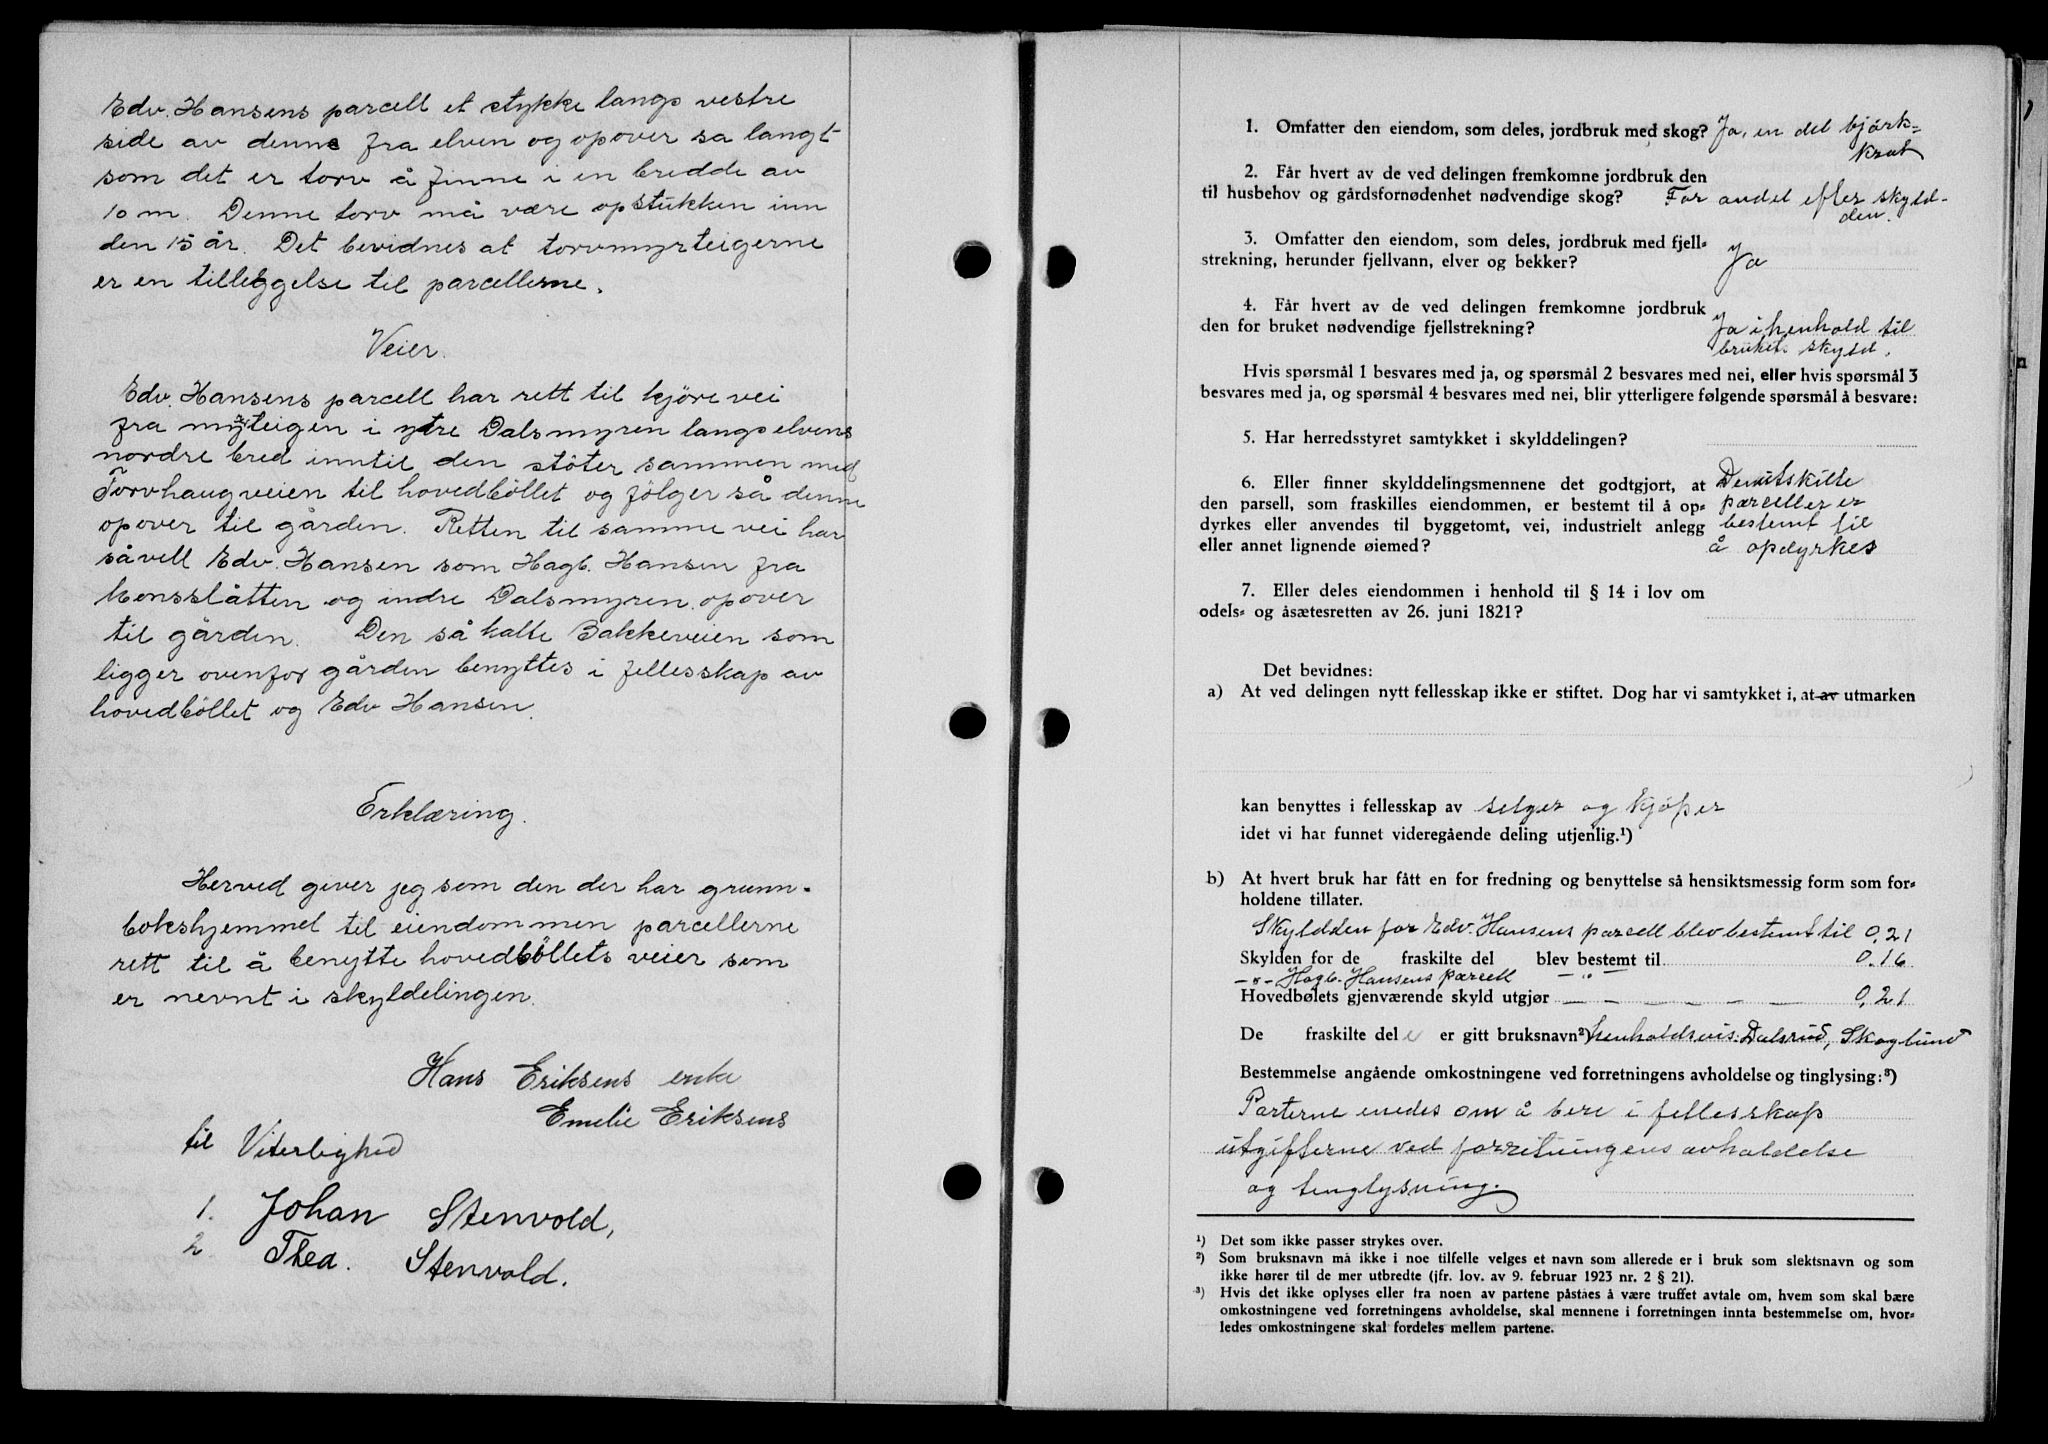 Edv. Hansens parcell et stykke langs vestre
side av denne fra elven og opover sa langt
som det er torv å finne i en bredde av
10 m. Denne torv må være opstukken inn
den 15 år. Det bevidnes at torvmyrteigerne
er en tilleggelse til parcellerne.
Veier.
Edv. Hansens parcell har rett til kjøre vei
fra myrteigen i ytre Dalsmyren langs elvens
nordre bred inntil den støter sammen med
Torvhaugveien til hovedböllet og fölger så denne
opover til gården. Retten til samme vei har
såvell Edv. Hansen som Hagb. Hansen fra
Monsslåtten og indre Dalsmyren opover
til gården. Den så kalte Bakkeveien som
ligger ovenfor gården benyttes i fellesskap av
hovedböllet og Edv Hansen.
Erklæring.
Herved giver jeg som den der har grunn-
bokshjemmel til eiendommen parcellerne
rett til å benytte hovedböllets veier som
er nevnt i skyldelingen.
Hans Eriksens enke
Emelie Eriksens
til Viterlighed
1. Johan Stenvold,
2. Thea. Stenvold.
1. Omfatter den eiendom, som deles, jordbruk med skog? Ja, en del bjørk=
krat
2. Får hvert av de ved delingen fremkomne jordbruk den
til husbehov og gårdsfornødenhet nødvendige skog? Får andel efter skyld-
den.
3. Omfatter den eiendom, som deles, jordbruk med fjell=
strekning, herunder fjellvann, elver og bekker? Ja
4. Får hvert av de ved delingen fremkomne jordbruk
den for bruket nødvendige fjellstrekning? Ja i henhold til
brukets skyld.
Hvis spørsmål 1 besvares med ja, og spørsmål 2 besvares med nei, eller hvis spørsmål 3
besvares med ja, og spørsmål 4 besvares med nei, blir ytterligere følgende spørsmål å besvare:
5. Har herredsstyret samtykket i skylddelingen?
6. Eller finner skylddelingsmennene det godtgjort, at De utskilte
den parsell, som fraskilles eiendommen, er bestemt til å op= parceller er
dyrkes eller anvendes til byggetomt, vei, industrielt anlegg bestemt til
eller annet lignende øiemed? å opdyrkes
7. Eller deles eiendommen i henhold til § 14 i lov om
odels= og åsætesretten av 26. juni 1821?
Det bevidnes:
a) At ved delingen nytt fellesskap ikke er stiftet. Dog har vi samtykket i, at av utmarken
kan benyttes i fellesskap av selger og kjøper
idet vi har funnet videregående deling utjenlig.¹)
b) At hvert bruk har fått en for fredning og benyttelse så hensiktsmessig form som for=
holdene tillater.
Skyldden for Edv. Hansens parcell blev bestemt til 0,21
Skylden for de fraskilte del blev bestemt til 0.16
-"- Hagb. Hansens parcell -"-
Hovedbølets gjenværende skyld utgjør — — — — — 0,21
De fraskilte del e er gitt bruksnavn²) henholdsvis: Dalsrud, Skoglund
Bestemmelse angående omkostningene ved forretningens avholdelse og tinglysing:³)
Parterne enedes om å bere i fellesskap
utgifterne ved forretningens avholdelse
og tinglysning.
¹) Det som ikke passer strykes over.
²) Som bruksnavn må ikke i noe tilfelle velges et navn som allerede er i bruk som slektsnavn og som
ikke hører til de mer utbredte (jfr. lov. av 9. februar 1923 nr. 2 § 21).
³) Hvis det ikke oplyses eller fra noen av partene påståes å være truffet avtale om, hvem som skal bære
omkostningene ved forretningens avholdelse, skal mennene i forretningen innta bestemmelse om, hvor=
ledes omkostningene skal fordeles mellem partene.